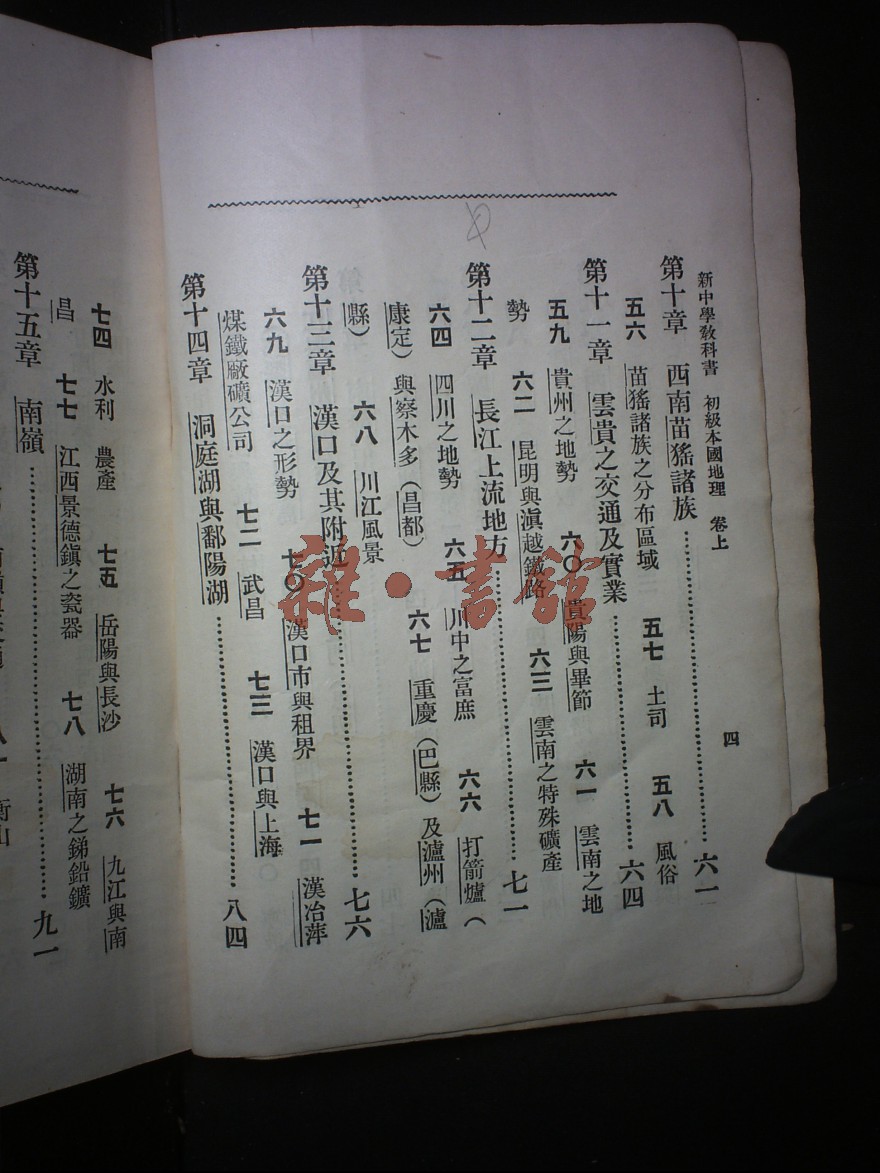 新中學教科書　初級本國地理　卷上
四
第十章　西南苗猺諸族……六一
五六　苗猺諸族之分布區域　五七　土司　五八　風俗
第十一章　雲貴之交通及實業……六四
五九　貴州之地勢　六〇　貴陽與畢節　六一　雲南之地
勢　六二　昆明與滇越鐵路　六三　雲南之特殊礦產
第十二章　長江上流地方……七一
六四　四川之地勢　六五　川中之富庶　六六　打箭爐（
康定）與察木多（昌都）　六七　重慶（巴縣）及瀘州（瀘
縣）　六八　川江風景
第十三章　漢口及其附近……七六
六九　漢口之形勢　七〇　漢口市與租界　七一　漢冶萍
煤鐵廠礦公司　七二　武昌　七三　漢口與上海
第十四章　洞庭湖與鄱陽湖……八四
七四　水利　農產　七五　岳陽與長沙　七六　九江與南
昌　七七　江西景德鎮之瓷器　七八　湖南之銻鉛鑛
第十五章　南嶺……九一
衡山
雜·書館